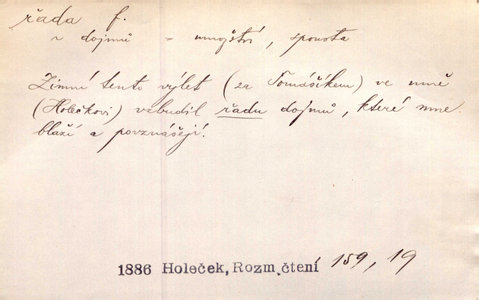 řada f.
~ dojmů = množství, spousta
Zimní tento výlet (za Tomášíkem) ve mně
(Holečkovi) vzbudil řadu dojmů, které mne
blaží a povznášejí.
1886 Holeček, Rozm. čtení 159, 19